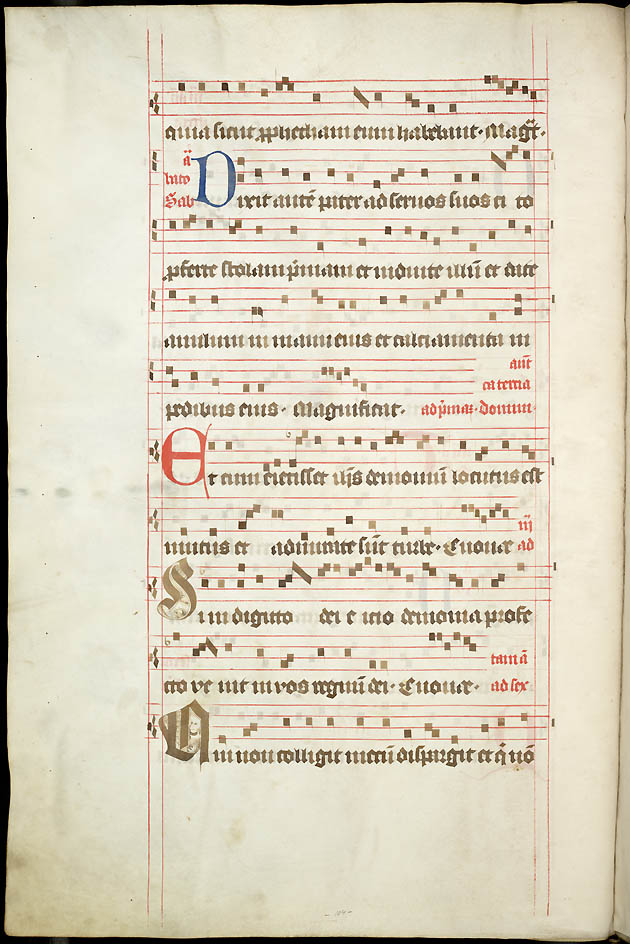 quia sicut prophetham eum habebant. Magt.
a
bato
Sab Dixit aute pater ad servos suos ci to
pferte stolam pmam et induite illu et date
anulum in manu eius et calciamenta in
ant
ca tercia
pedibus eius. Magnificat. ad pmas. domini
Et cum eiecisset ihs demoniu locutus est
mutus et admirate sut turbe. Euouae ad
Si in digitto dei e icio demonia profe
tam a
cto ve nit in vos regnu dei. Euouae. ad sex
Qui non colligit mecu dispgit et q no